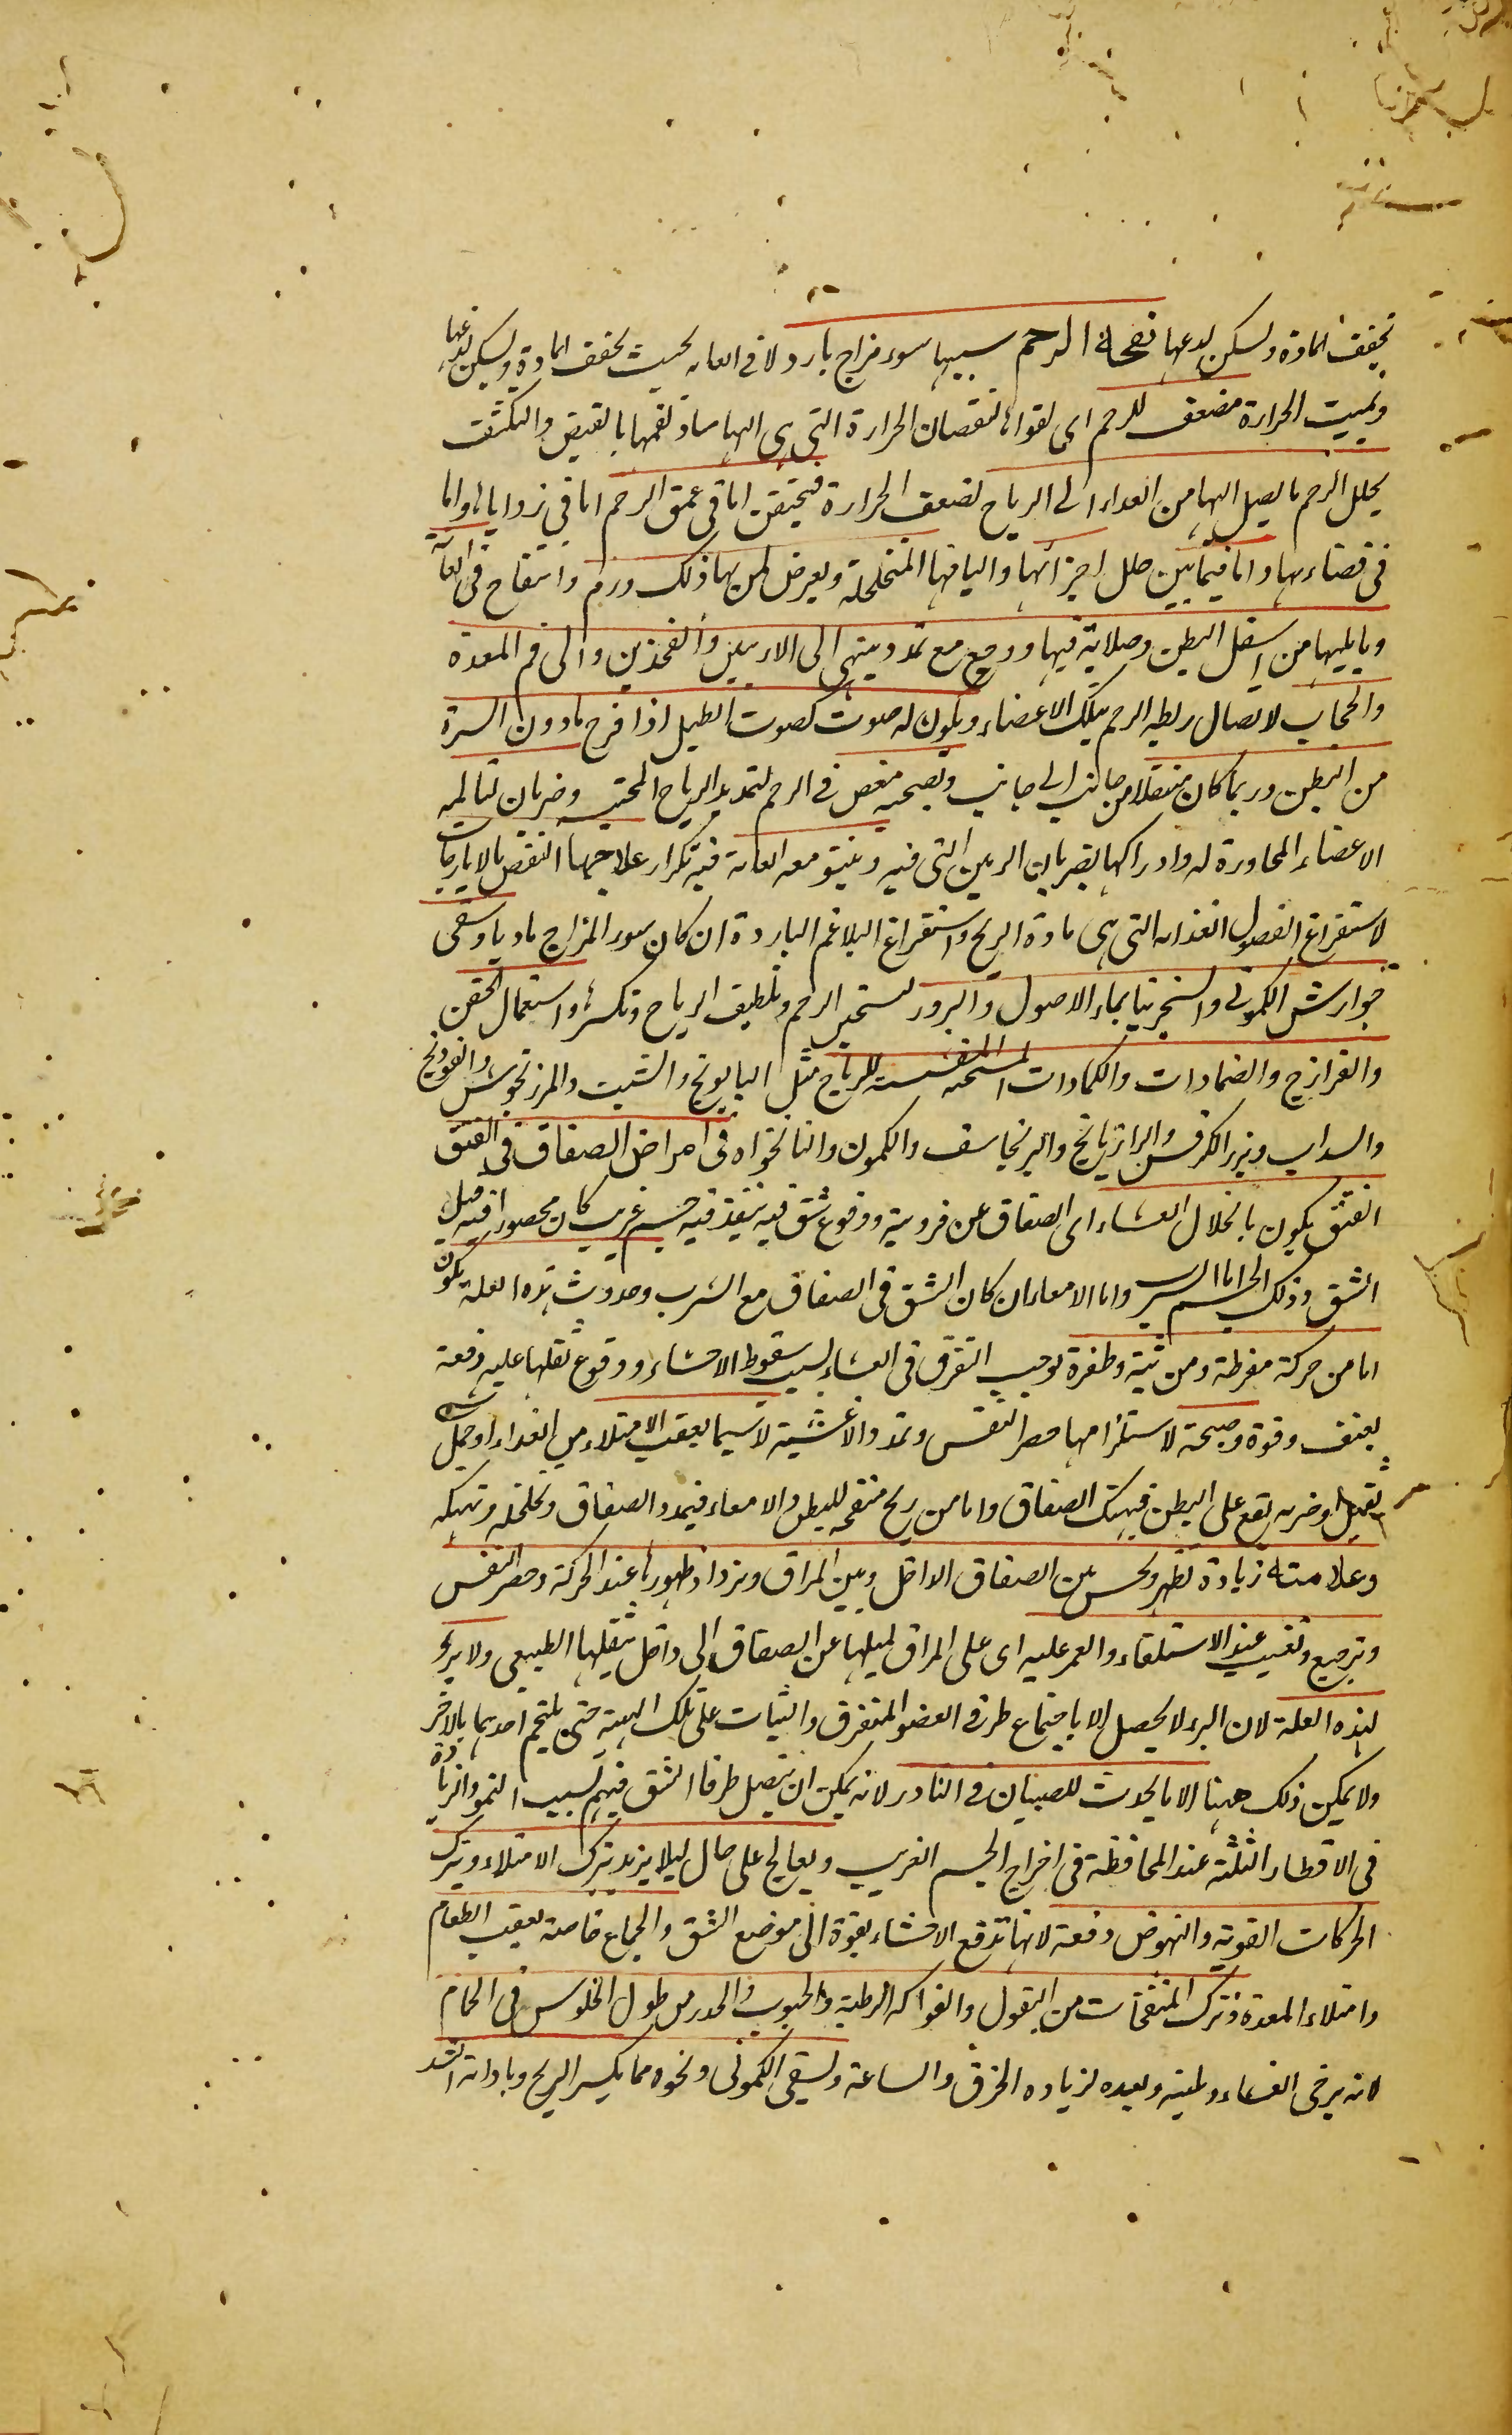 تجفف المادة وتسكن لدعها نفخة الرحم سببها سوء مزاج بارد لا فى الغايه بحيث يجفف المادة ويسكن لدعها
ويميت الحرارة مضعف للرحم اى لقواها لنقصان الحرارة التى هى الها بالقبض والتكثف
يحلل الرحم ما يصل اليها من الغداء الى الرياح لضعف الحرارة فيحتقن اما فى عمق الرحم اما فى زواياها واما
فى فضاءها واما فيما بين خلل اجزائها واليافها المتخلخلة ويعرض لمن بها ذلك ورم وانتفاخ فى العانة
وما يليها من اسفل البطن وصلابة فيها ووجع مع تمدد ينتهى الى الاربيتين والفخذين والى فم المعدة
والحجاب لاتصال ربطه الرحم بتلك الاعضاء ويكون له صوت كصوت الطبل اذا قرع ما دون السرة
من البطن وربما كان منتقلا من جانب الى جانب ويصحبه مغص فى الرحم لتمديد الرياح المحتبسه وضربان لتالمه
الاعضاء المجاورة له وادراكها بضربان الشرايين التى فيه وينتو معه العانة فيه تكرار علاجها النفض بالايارجات
لاستفراغ الفضول الغذائه التى هى مادة الريح واستفراغ البلاغم الباردة ان كان سوء المزاج ماديا وسقى
جوارش الكمونى والسنجرينا بماء الاصول والبزور لتسخين الرحم وتلطيف الرياح وتكسرها واستعمال الحقن
والفرازج والضمادات والكمادات المسخنه المنفشة للرياح مثل البابونج والشبت والمرزنجوش والفودنج
والسداب وبزر الكرفس والرازيانج والبرنجاسف والكمون والنانخواه فى امراض الصفاق فى الفتق
الفتق يكون بانحلال الغشاء اى الصفاق عن فرديته ووقوع شق فيه ينفذ فيه جسم غريب كان محصورا فيه قبل
الشق وذلك الجسم اما الثرب واما الامعاء ان كان الشق فى الصفاق مع الثرب وحدوث هذه العلة يكون
اما من حركة مفرطة ومن وثبة وطفرة توجب التفرق فى الغشاء لسبب سقوط الاحشاء ووقوع ثقلها عليه دفعة
بعنف وقوة وصيحة لاستلزامها حصر النفس وتمدد الاغشية لا سيما بعقب الامتلاء من الغداء او حمل شئ
ثقيل او ضربه يقع على البطن فيهتك الصفاق واما من ريح منفخه للبطن والامعاء فيمدد الصفاق وتخلخله وتهتكه
وعلامته زيادة تظهر وتحس بين الصفاق الداخل وبين المراق ويزداد ظهورها عند الحركة وحصر النفس
وترجيع وتغيب عند الاستلقاء والغمز عليه اى على المراق لميلها عن الصفاق الى داخل بثقلها الطبيعى ولا برء
لهذه العلة لان البرء لا يحصل الا باجتماع طرفى العضو المتفرق والثبات على تلك الهيئة حتى يلتحم احدهما بالاخر
ولا يمكن ذلك ههنا الا ما يحدث للصبيان فى النادر لانه يمكن ان يتصل طرفا الشق فيهم بسبب النمو وازدياد
فى الاقطار الثلثة عند المحافظة فى اخراج الجسم الغريب ويعالج على حال ليلا يزيد بترك الامتلاء وبترك
الحركات القوية والنهوض دفعة لانها تدفع الاحشاء بقوة الى موضع الشق والجماع خاصة بعقب الطعام
وامتلاء المعدة وبترك المنفخات من البقول والفواكه الرطبة والحبوب والحدر من طول الجلوس فى الحمام
لانه يرخى الغشاء ويلينه ويعده لزيادة الخرق والساعة ويسقى الكمونى ونحوه مما يكسر الريح